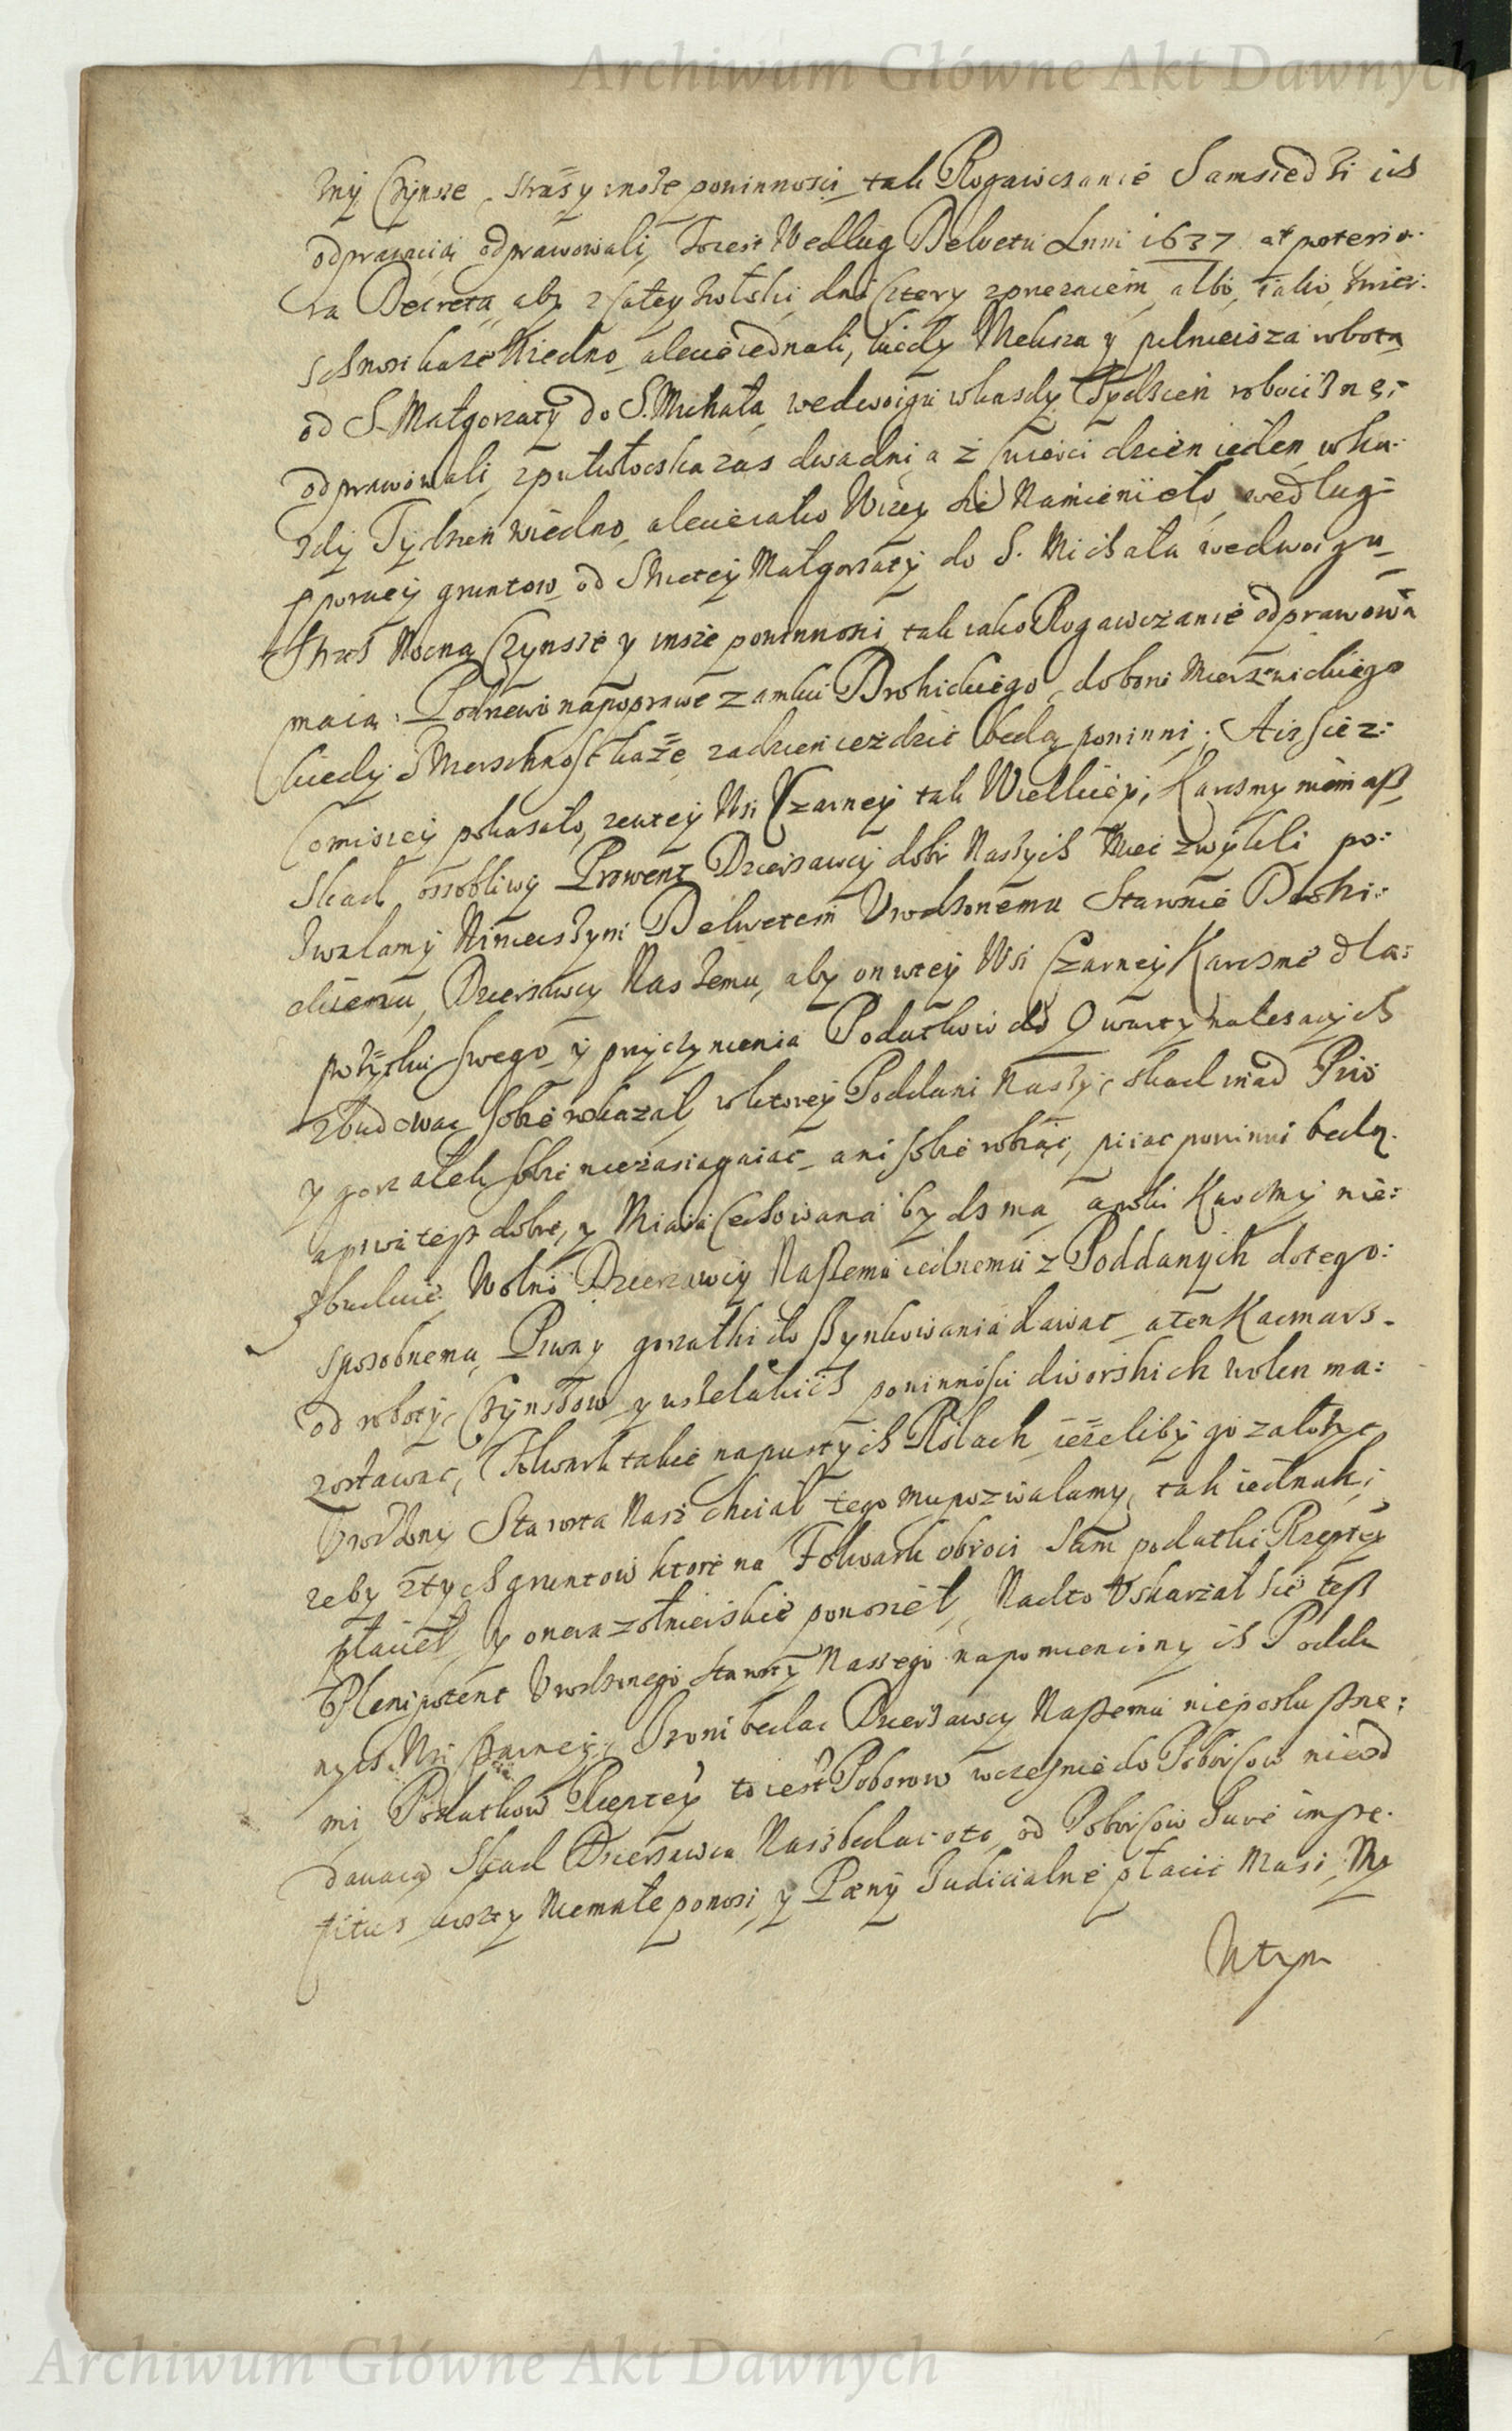 Archiwum Główne Akt Dawnych
zny Czynsze, strazy insze powinnosci, tak Rogawczanie Samsiedzi ich
odprawuią odprawowali, To iest Wedlug Dekretu Anni 1637 at posterio-
ra Decreta, aby z całey włoki dni cztery z poprzezaiem albo iako zwier-
schnosc kaze Kiedno, a kiedy Wieksza y pilnieisza robota
od S. Małgorzaty do S. Michała, we dwoigu w kazdy Tydzien robocizne
odprawowali, z pułwłoczka zas dwa dni a z cwierci dzien ieden w ka-
zdy Tydzien wiedno, iako Wizey sie Namieniło, według
gruntow od Swietey Małgorzaty do S. Michała we dwoigu
Straz Nocną Czynsze y insze powinnosci tak iako Rogawczanie odprawowa
maią. Po drzewo na poprawe zamku Drohickiego, do boru Mierzwickiego
kiedy Zwierzchnosc kaze, za dzien iezdzic będą powinni; A iz sie z
Comissiey pokazało, ze w tey Wsi Czarney tak Wielkiey, Karczmy niemasz
Skad ossobliwy Prowent Dzierzawcy dobr Naszych miec zwykli po-
zwalamy Ninieyszym Dekretem Urodzonemu Staroscie Drohi-
ckiemu, Dzierzawcy Naszemu, aby on w tey Wsi Czarney Karczme dla
pozytku swego y przyczynienia Podatkow do Qwarty nalezacych
zbudowac sobie rozkazał, w ktorey Poddani Naszy, skad inad Piw
y gorzałek sobie nie zasiagaiac, ani sobie robiąc, piiac powinni będą.
a piwa tesz dobre, y Miara cechowana bydz ma, a poki Karczmy nie
zbuduie Wolno Dzierzawcy Naszemu iednemu z Poddanych do tego
sposobnemu, Piwa y gorzałki do szynkowania dawac, a ten Kacmarz
od roboty, Czynszow y wszelakich powinnosci dworskich wolen ma
zostawac, Folwark takze na pustych Rolach, iezeliby go załozyc
Urodzony Starosta Nasz chciał tego mu pozwalamy, tak iednak,
zeby z tych gruntow ktore na Folwark obroci Sam podatki Rzeptey
płacieł, y onera zołnierskie ponosieł, Nadto Uskarzał sie tesz
Plenipotent Urodzonego Starosty Naszego na pomienionych Podda
nych Wsi Czarney, Iz oni bedac Dzierzawcy Naszemu nieposłuszne
mi, Podatkow Rzeptey to iest Poborow wczesnie do Poborcow nieod
dawaią Skad Dzierzawca Nasz bedac o to, od Poborcow Iure impe-
titus, koszty Niemałe ponosi, y Pæny Iudicialne płacic Musi, My
W tym
Archiwum Główne Akt Dawnych